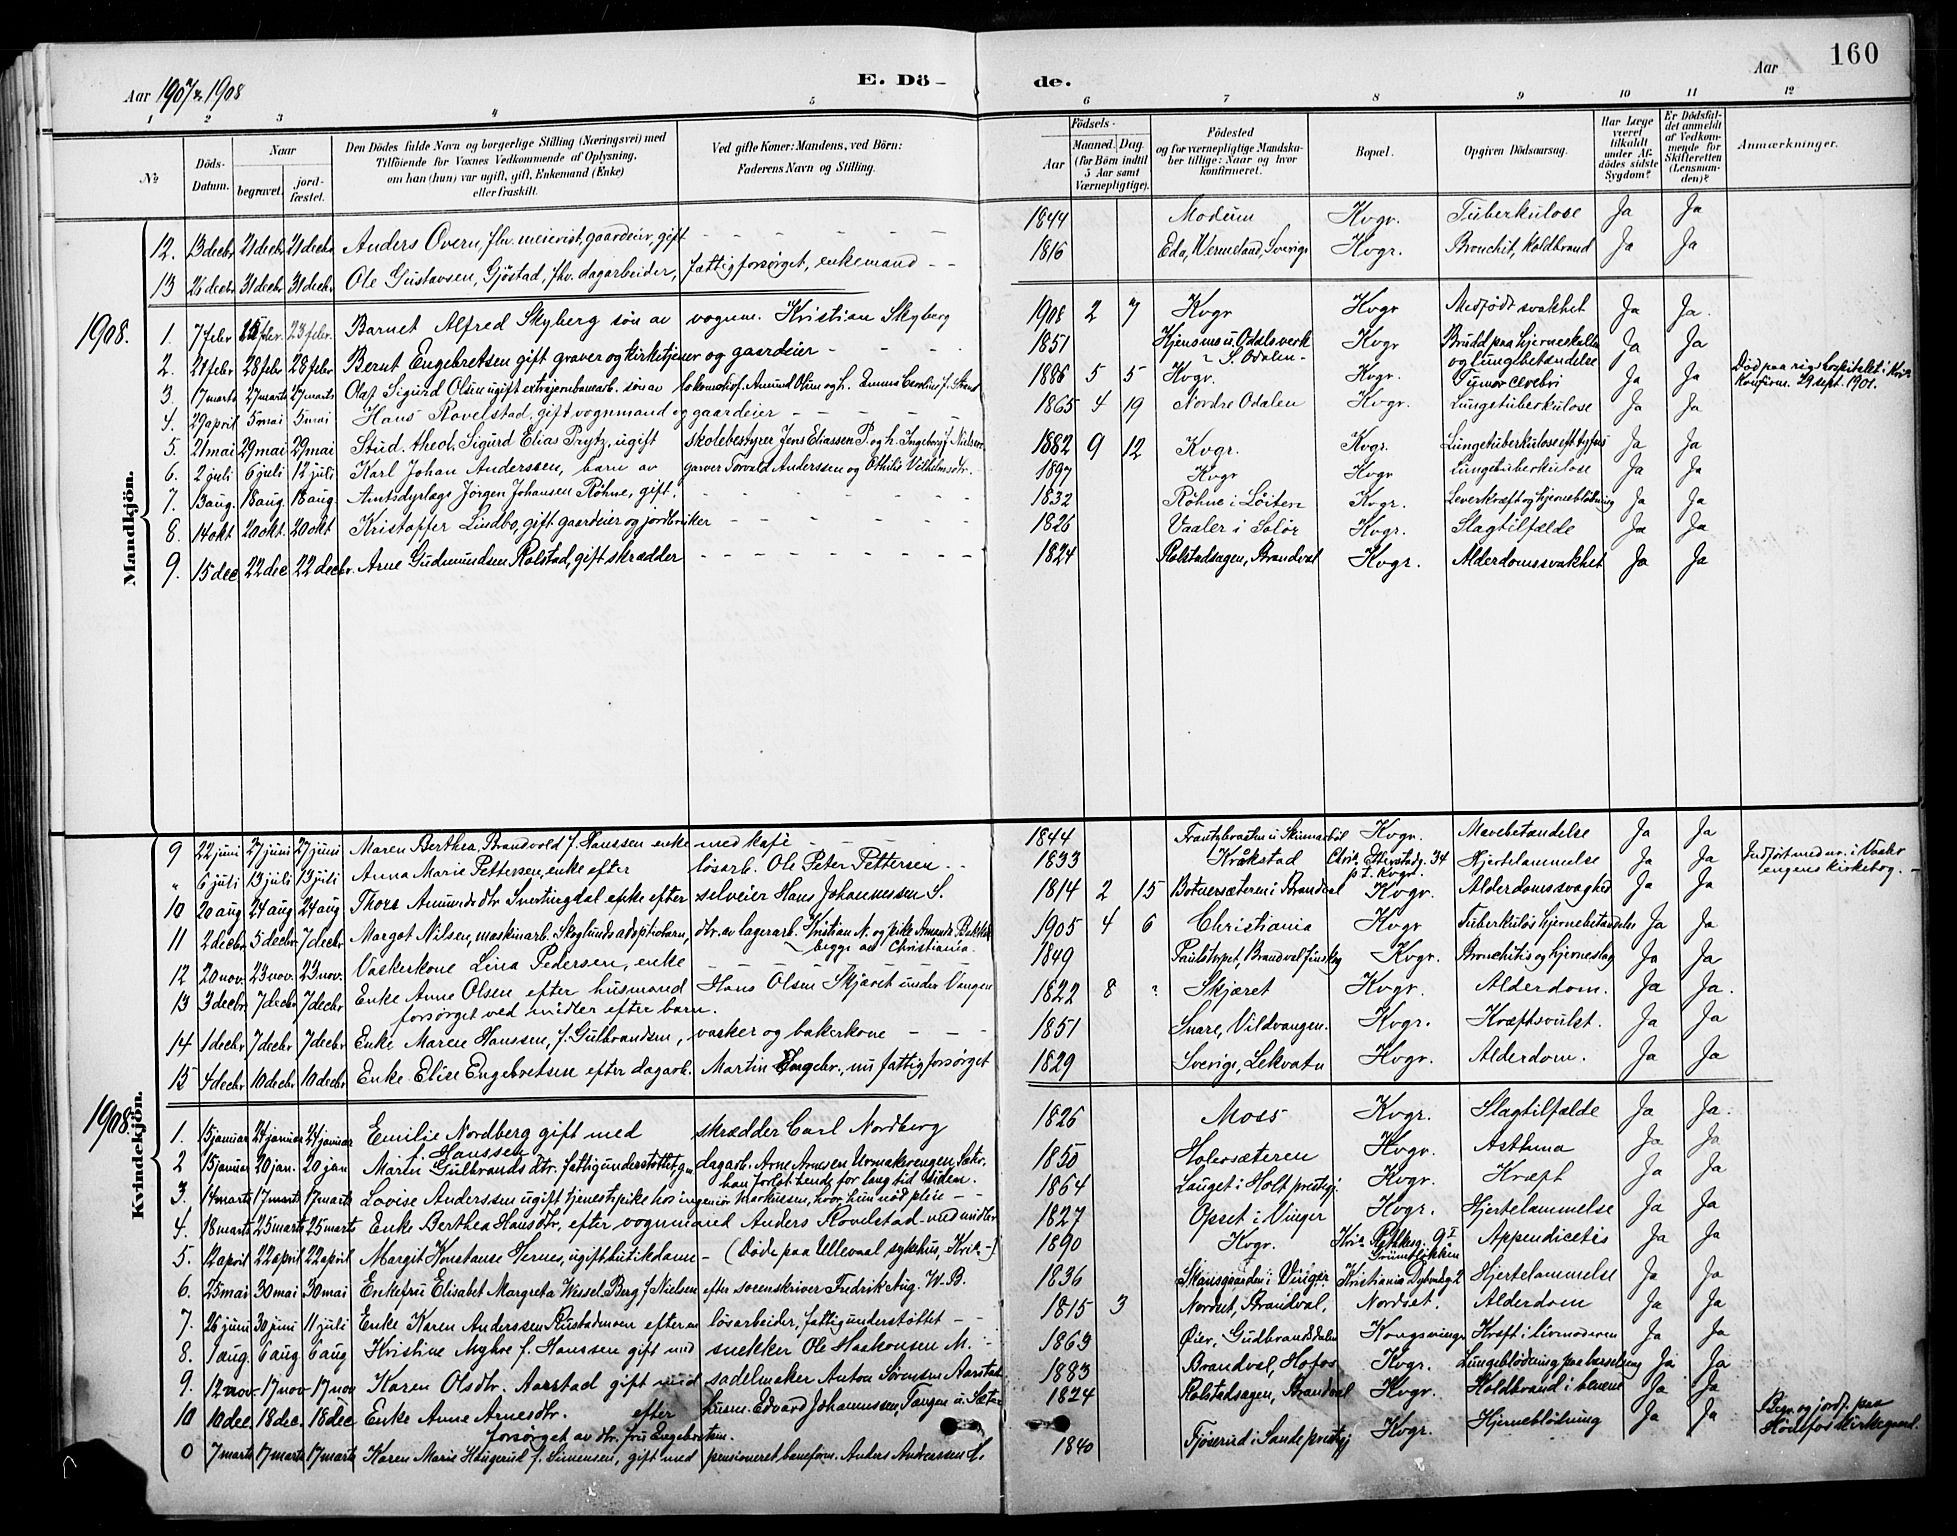 160
Aar 1907 & 1908
E. Dö-
de.
Aar
1 2 3 4 5 6 7 8 9 10 11 12
№
Döds-Datum.
Naar
begravet.
jord-fæstet.
Den Dödes fulde Navn og borgerlige Stilling (Næringsvei) med Tilföiende for Voxnes Vedkommende af Oplysning, om han (hun) var ugift, gift, Enkemand (Enke) eller fraskilt.
Ved gifte Koner: Mandens, ved Börn: Faderens Navn og Stilling.
Födsels-
Aar
Maaned. Dag.
(for Börn indtil 5 Aar samt Værnepligtige).
Födested og for værnepligtige Mandskaber tillige: Naar og hvor konfirmeret.
Bopæl.
Opgiven Dödsaarsag.
Har Læge været tilkaldt under Afdödes sidste Sygdom?
Er Dödsfaldet anmeldt af Vedkommende for Skifteretten (Lensmanden)?
Anmærkninger.
Mandkjön.
12. 13 decbr 21 decbr 21 decbr Anders Overn, fhv. meierist, gaardeier, gift - - - 1844 Modum Kvgr. Tuberkulose Ja Ja
13 26 decbr 31 decbr 31 decbr Ole Gustavsen, Gjöstad, fhv. dagarbeider, fattigforsörget, enkemand - - 1816 Eda, Vermeland, Sverige Kvgr. Bronchit, Koldbrand Ja Ja
1908.
1. 7 febr 23 febr. Barnet Alfred Skyberg sön av vognm. Kristian Skyberg 1908 2 7 Kvgr Kvgr Medfödt svakhet Ja Ja.
2. 21 febr 28 febr 28 febr Bernt Engebretsen gift graver og kirketjener og gaardeier - - 1851 Hjensmo u. Odals verk S. Odalen - Kvgr Brudd paa hjerneskallen og Lungebetændelse Ja Ja
3. 17 marts 27 marts 27 marts Olaf Sigurd Olsen ugift extrajernbanearb. sön av lokomotivf. Amund Olsen og h. Emma Caroline f. Strand 1886 5 5 Kvgr. Kvgr. Tumor cerebri Ja Ja Död paa rigshospitalet i Kr.a Konfirm. 29 sept. 1901.
4. 29 april 5 mai 5 mai Hans Rovelstad, gift, vognmand og gaardeier - - - 1865 4 19 Nordre Odalen Kvgr. Lungetuberkulose Ja Ja
5. 21 mai 29 mai 29 mai Stud. theol. Sigurd Elias Prytz, ugift skolebestyrer Jens Eliassen P. og h. Ingeborg f. Nielsen 1882 9 12 Kvgr. Kvgr. Lungetuberkulose eft. tyfus Ja Ja
6. 2 juli 6 juli 12 juli Karl Johan Anderssen, barn av garver Torvald Anderssen og Othilie Vilhelmsdtr. 1897 Kvgr Kvgr Lungetuberkulose Ja Ja
7. 13 aug. 18 aug. 18 aug. Amtsdyrlæge Jörgen Johansen Röhne, gift. - - - 1832 Röhne i Löiten Kvgr. Leverkræft og hjerneblödning Ja Ja
8. 14 okt 20 okt. 20 okt Kristoffer Lindbo, gift, gaardeier og jordbruker - - - 1826 Vaaler i Solör Kvgr. Slagtilfælde Ja Ja
9. 15 dec 22 dec 22 decbr. Arne Gudmundsen Rolstad, gift skrædder - - - 1824 Rolstadsagen, Brandval Kvgr. Alderdomssvakhet Ja Ja
Kvindekjön.
9 22 juni 27 juni 27 juni Maren Berthea Brandvold f. Hanssen enke med kafe - - 1844 Kvgr. Mavebetændelse Ja Ja
" 6 juli 13 juli 13 juli Anna Marie Pettersen, enke efter lösarb. Ole Peter Pettersen - - 1833 Kråkstad Chr.a Etterstadg. 34 p.t. Kvgr. Hjertelammelse Ja Ja Indfört med nr. i Vaalerengens kirkebog. -
10 20 aug 24 aug 24 aug Thore Amundsdtr Svertingdal enke efter selveier Hans Johannessen S. 1814 2 15 Botnersæteren i Brandval Kvgr. Alderdomssvaghet Ja Ja
11 2 decbr 5 decbr 7 decbr Margot Nilsen, maskinarb. Skoglunds adoptivbarn, dtr. av lagerarb. Kristian N. og pike Amanda begge av Christiania. 1905 4 6 Christiania Kvgr Tuberkulös hjernebetændelse Ja Ja
12 20 nov. 23 nov. 23 nov. Vaskerkone Lina Pedersen, enke - - - 1849 Paulstorpet, Brandval finskog Kvgr. Bronchitis og hjerneslag Ja Ja
13 3 decbr 7 decbr 7 decbr Enke Anne Olsen efter husmand Hans Olsen Skjæret under Vangen forsörget ved midler efter barn. 1822 8 ? Skjæret Kvgr. Alderdom. Ja Ja.
14 1 decbr 7 decbr 7 decbr Enke Maren Hanssen, f. Gulbrandsen, vasker og bakerkone - - - 1851 Snare, Vildvangen. Kvgr. Kræftsvulst. Ja Ja
15 4 decbr 10 decbr 10 decbr Enke Elise Engebretsen efter dagarb. Martin Engebr., nu fattigforsörget 1829 Sverige, Lekvatn Kvgr. Alderdom. Ja Ja
1908.
1. 15 januar 24 januar 24 januar Emilie Nordberg gift med skrædder Carl Nordberg f. Hanssen 1826 Moss Kvgr. Slagtilfælde Ja Ja.
2 15 januar 20 jan. 20 jan Maren Gulbrandsdtr. fattigunderstöttet, gm dagarb. Arne Arnesen Urmakerengen, Sæter, han forlot hende for lang tid siden. 1850 Holersæteren Kvgr. Asthma Ja Ja
3. 14 marts 17 marts 17 marts Lovise Anderssen ugift tjenestepike hos ingeniör Markussen, hvor hun nöd pleie - - 1864 Lauget i Holt prestegj. Kvgr. Kræft Ja Ja
4. 18 marts 25 marts 25 marts Enke Berthea Hansdtr. efter vognmand Anders Rovelstad - med midler 1827 Opset i Vinger Kvgr. Hjertelammelse Ja Ja
5. 12 april 22 april 22 april Margit Konstanse Hernes, ugift butikdame - (Döde paa Ullevaal sykehus, Kr.a -) 1890 Kvgr. 9 I Grünerlökken Appendicitis Ja Ja
6. 25 mai 30 mai 30 mai Enkefru Elisabet Margreta Wessel Berg f. Nielsen efter sorenskriver Fredrik Aug. W. B. 1836 Skansgaarden i Vinger Kristiania Hjertelammelse Ja Ja
7. 26 juni 30 juni 11 juli Enke Karen Anderssen Rustadmoen efter en lösarbeider, fattigunderstöttet - - 1815 3 Nordset, Brandval, Nordset. Alderdom Ja Ja
8. 1 aug. 6 aug 6 aug Kristine Myhre f. Hanssen gift med snekker Ole Haakonsen M. - 1863 Öier, Gudbrandsdalen Kongsvinger Kræft i livmoderen Ja Ja
9. 12 nov- 17 nov- 17 nov Karen Olsdtr. Aarstad gift med sadelmaker Anton Sörensen Aarstad 1883 Brandval, Hofos Kvgr. Lungeblödning paa barselseng Ja Ja
10 10 dec. 18 dec. 18 dec Enke Anne Arnesdtr. efter husm. Edvard Johannessen, Tangen u. Sæter forsörget av dtr. fru Engebretsen. 1824 Rolstadsagen, Brandval Kvgr. Koldbrand i benene Ja Ja
0 7 marts 17 marts 17 marts Karen Marie Haugerud f. Simensen, gift med pensioneret baneform. Anders Andreassen H. 1840 Tjöserud i Sande prestegj Kvgr. Hjerneblödning Ja Ja Begr. og jordf. paa Hönefos kirkegaard.